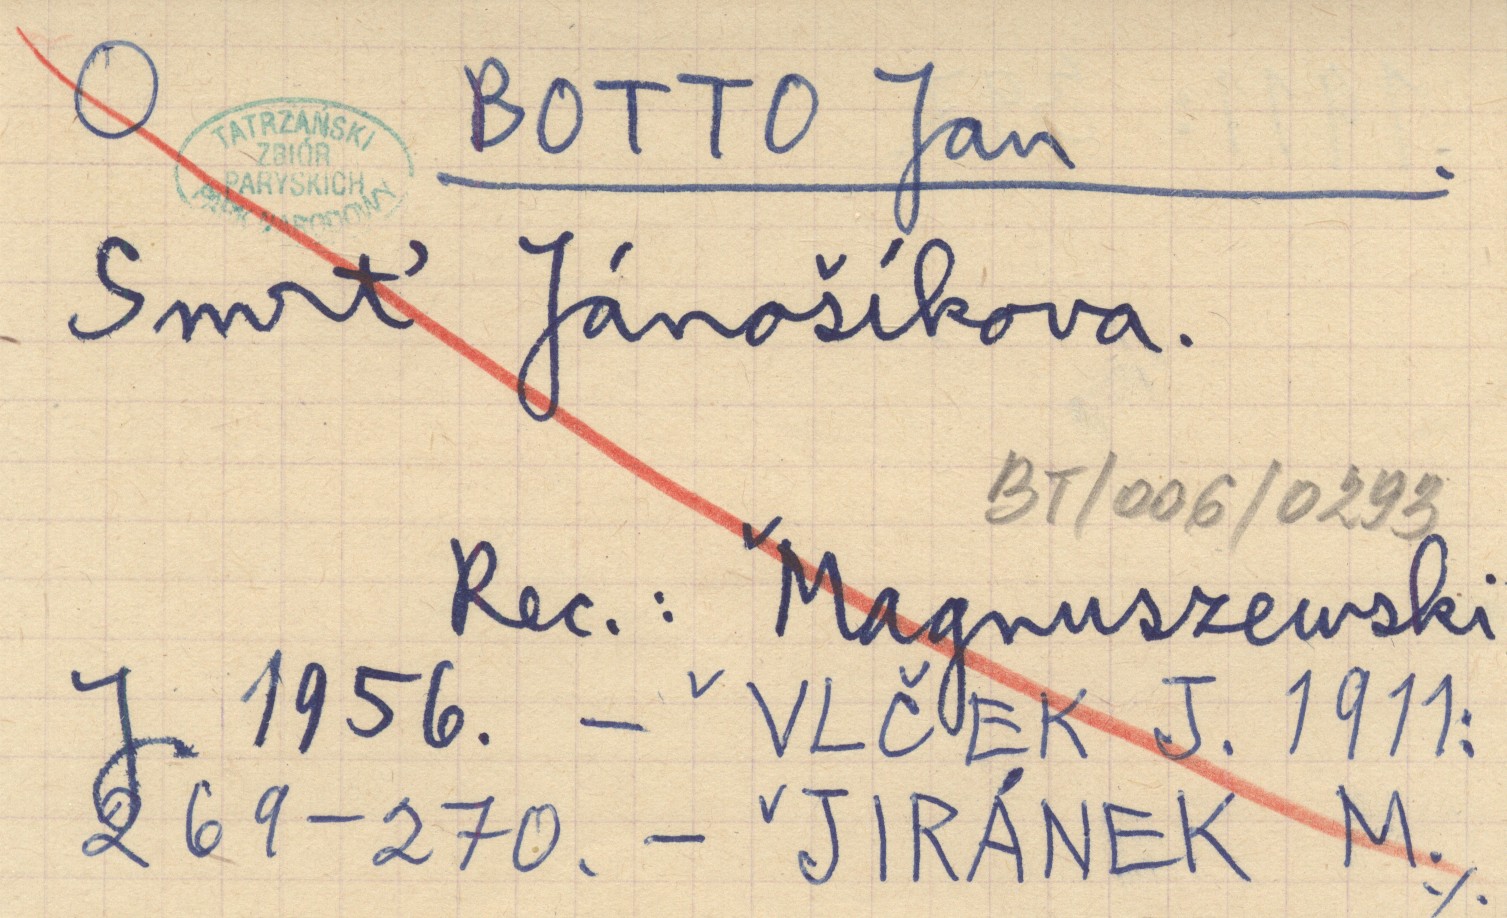 O BOTTO Jan .
TATRZAŃSKI
ZBIÓR
PARYSKICH
PARK NARODOWY
Smrť Jánošíkova.
BT/006/0293
Rec.: ˇMagnuszewski
J. 1956. — ˇVLČEK J. 1911:
269-270. — ˇJIRÁNEK M. ./.